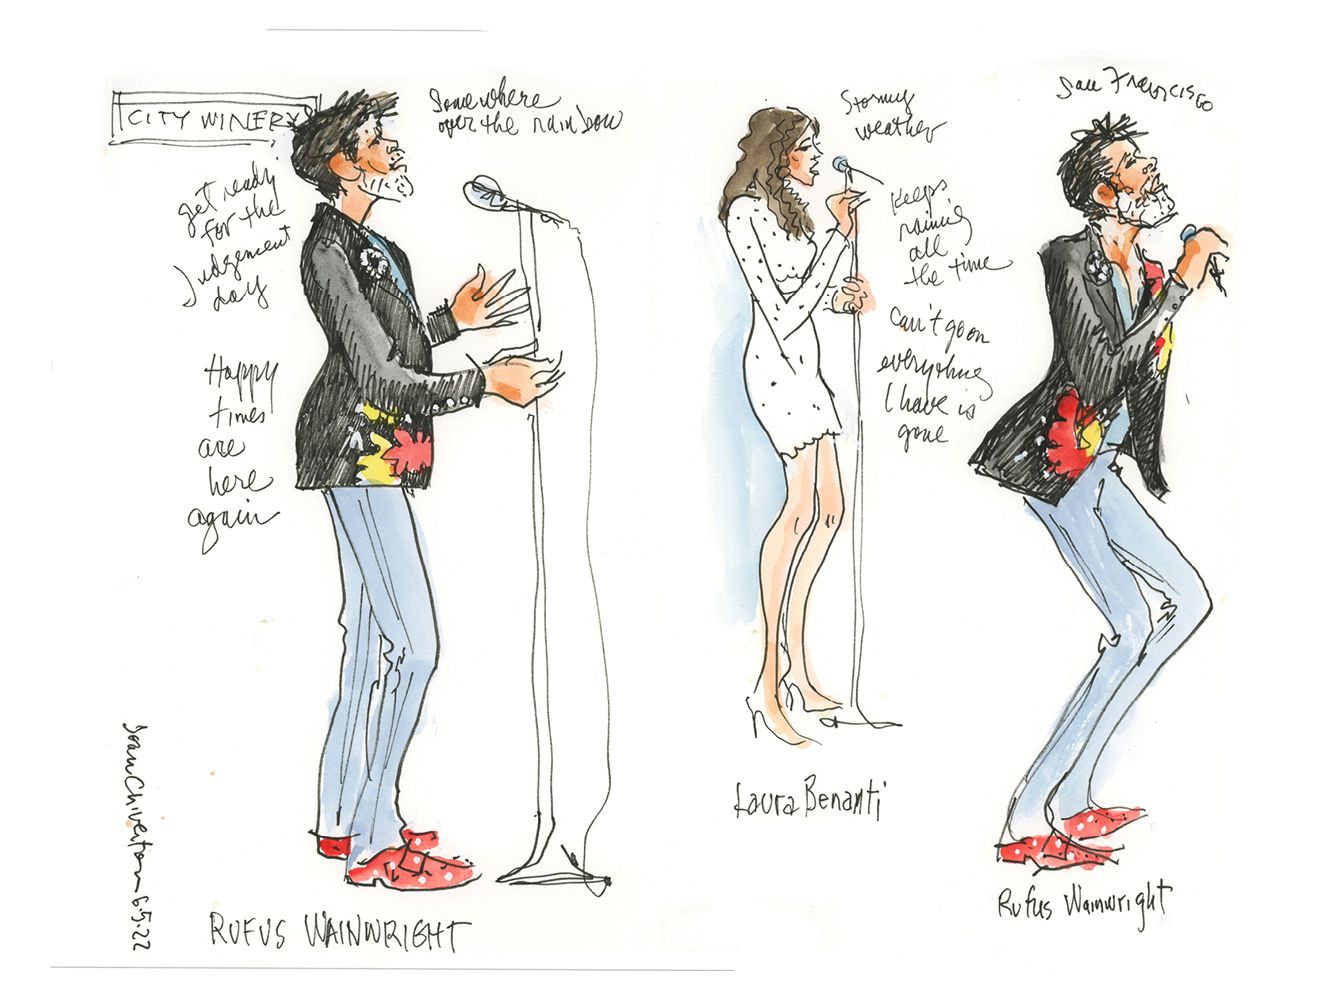 CITY WINERY
Somewhere
over the rainbow
get ready
for the
Judgement
day
Happy
times
are
here
again
Joan Chiverton 6.5.22
RUFUS WAINWRIGHT
Stormy
weather
Keeps
raining
all
the time
Can't go on
everything
I have is
gone
Laura Benanti
San Francisco
Rufus Wainwright